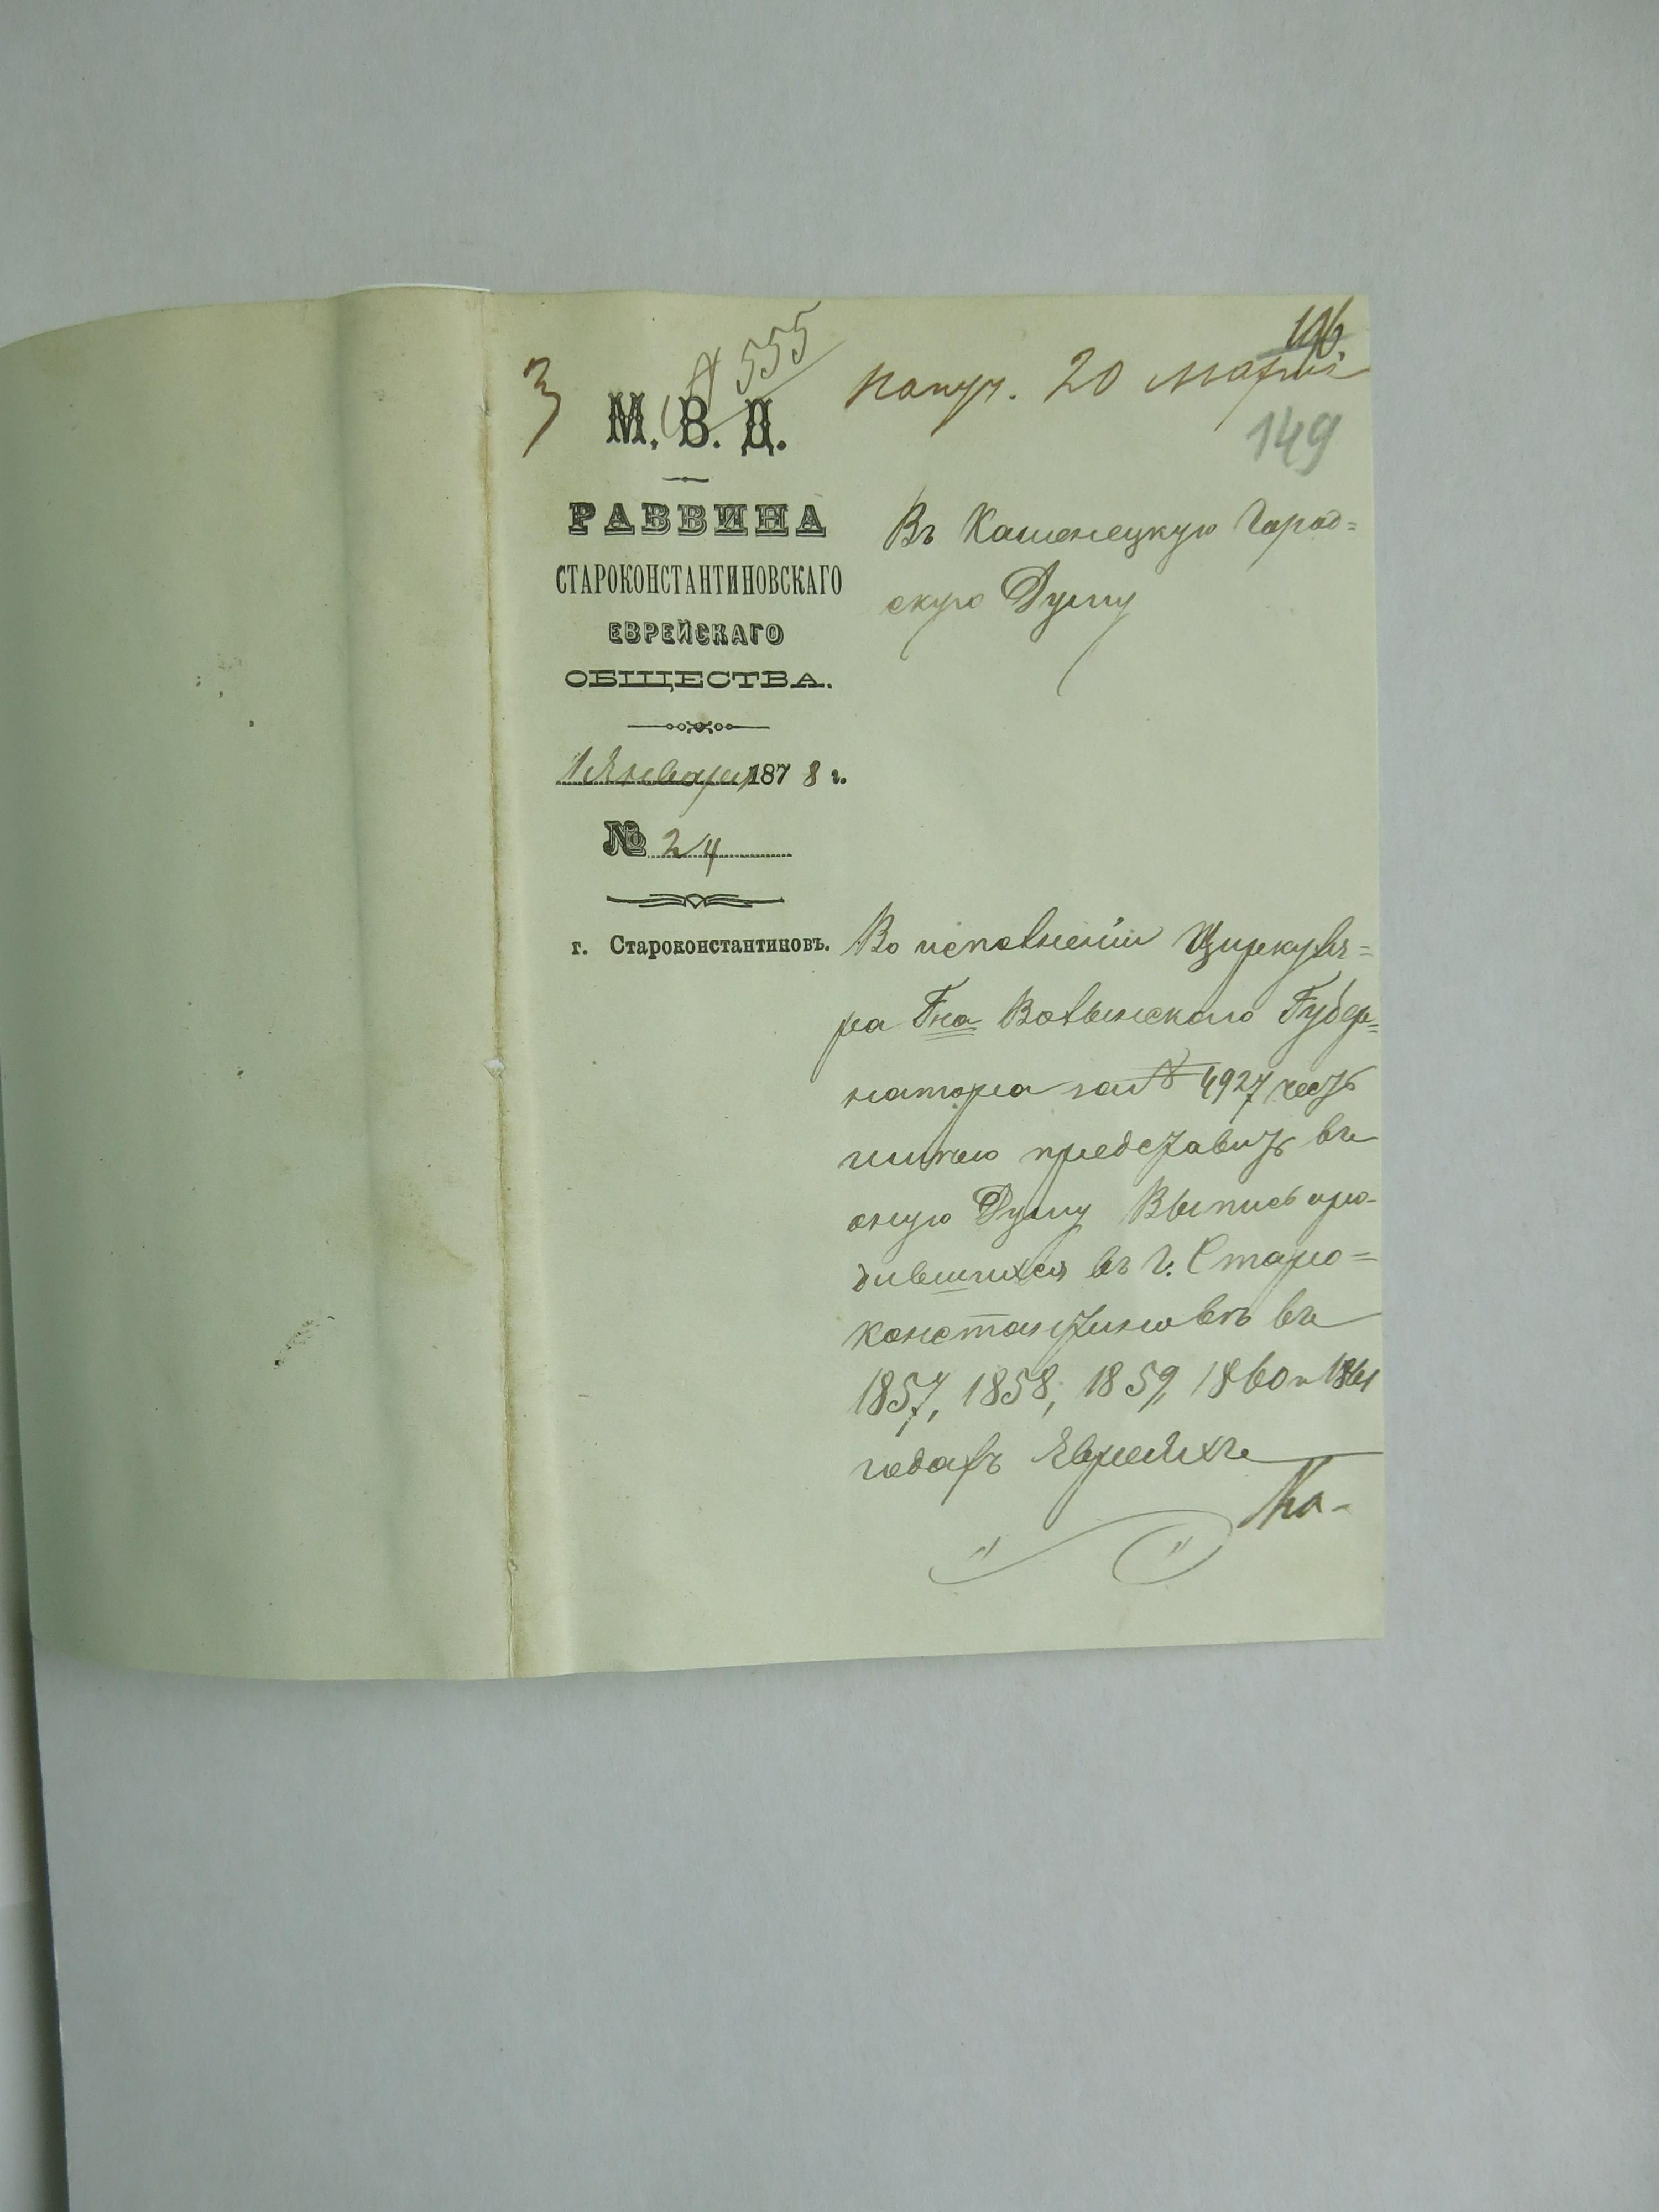 3
№ 555
196.
получ. 20 марта
149
М. В. Д.
РАВВИНА
СТАРОКОНСТАНТИНОВСКАГО
ЕВРЕЙСКАГО
ОБЩЕСТВА.
1 Января 1878 г.
№ 24
г. Староконстантиновъ.
Въ Каменецкую Город=
скую Думу
Во исполненіи Циркуля=
ра Гна Волынскаго Губер=
натора за № 4927 честь
имѣю представить въ
оную Думу Выпись о ро-
дившихся въ г. Старо=
константиновѣ въ
1857, 1858, 1859, 1860 и 1861
годахъ Евреяхъ
Ка-